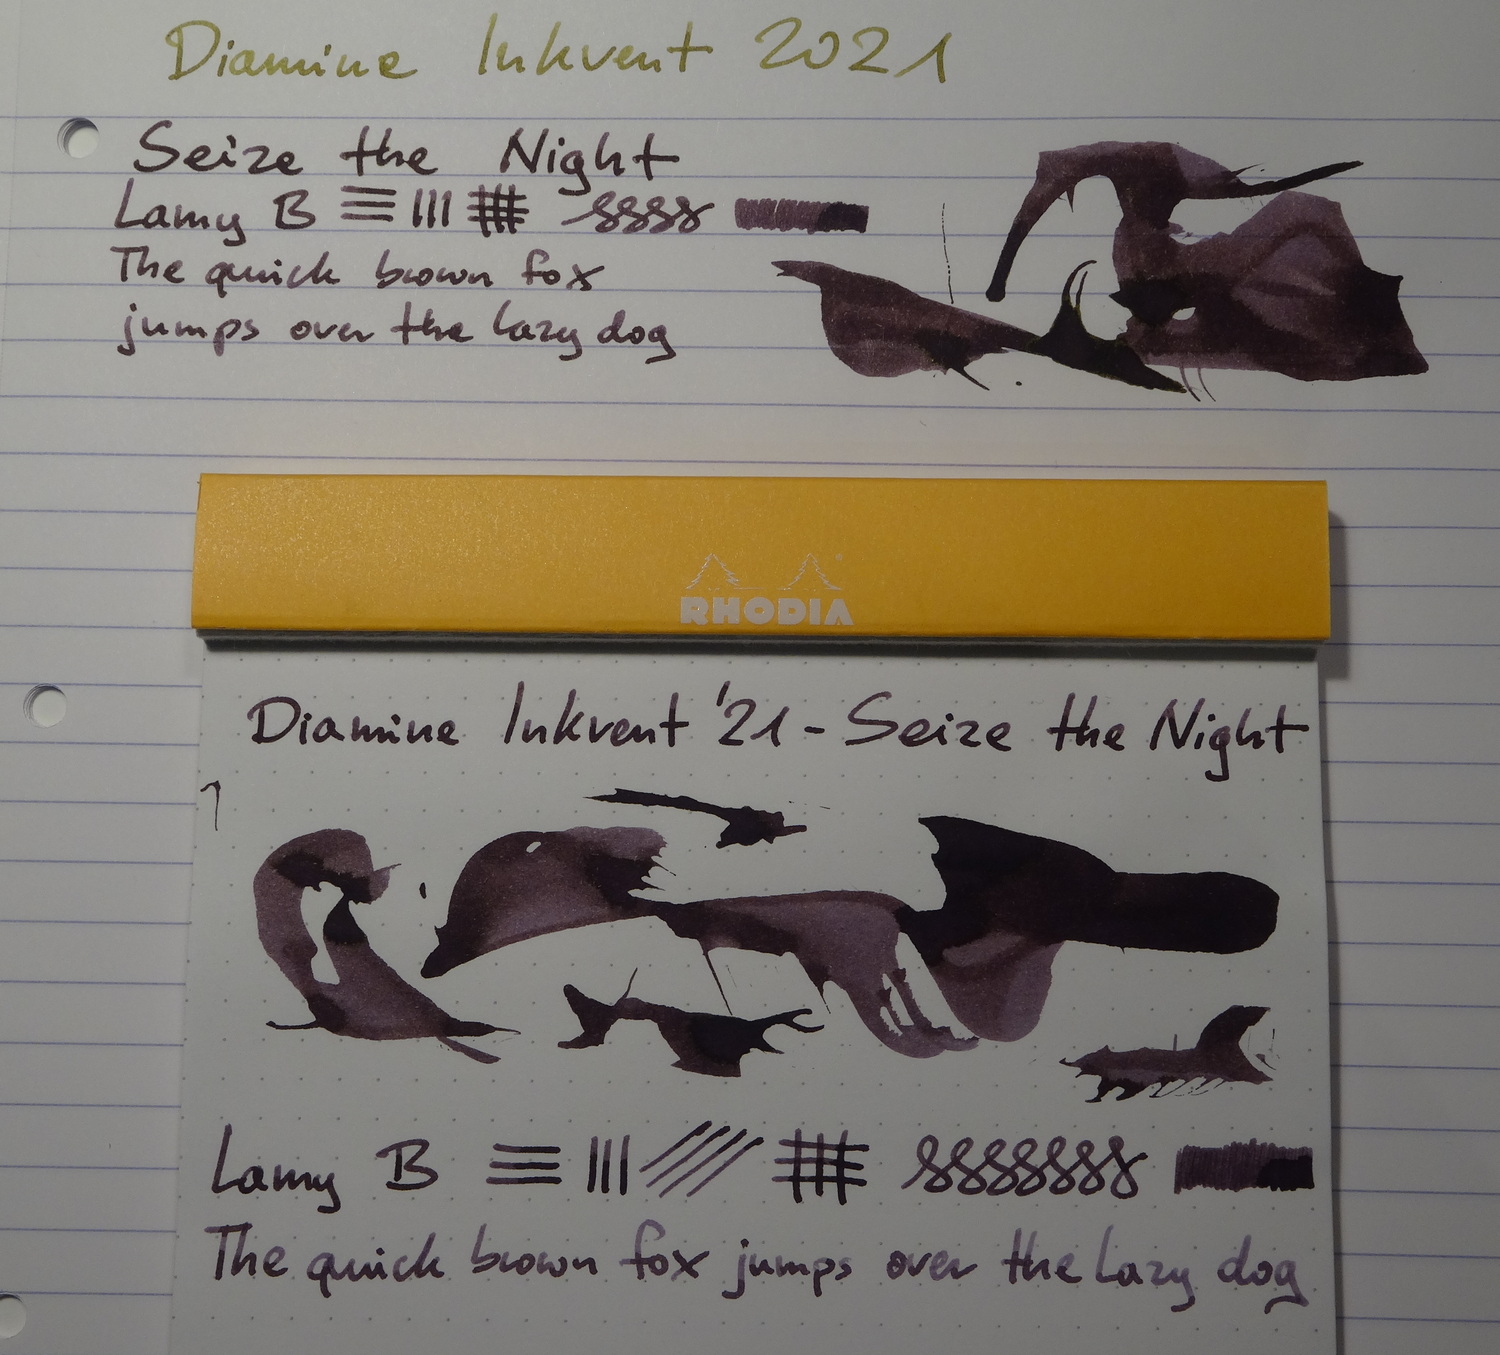 Diamine Inkvent 2021
Seize the Night
Lamy B
The quick brown fox
jumps over the lazy dog
RHODIA
Diamine Inkvent '21 - Seize the Night
Lamy B
The quick brown fox jumps over the lazy dog